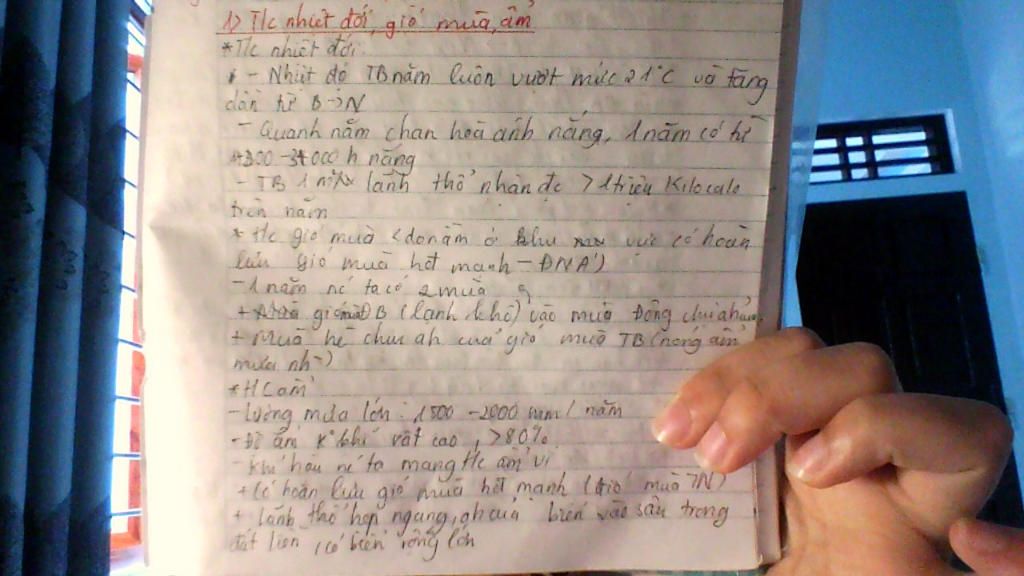 1) T/c nhiệt đới, gió mùa, ẩm
*T/c nhiệt đới:
- Nhiệt độ TB năm luôn vượt mức 21°C và tăng
dần từ B->N
- Quanh năm chan hoà ánh nắng, 1 năm có từ
000 h nắng
- TB 1 lãnh thổ nhận đc > 1 triệu Kilocalo
trên năm
* t/c gió mùa (do nằm ở khu vực có hoàn
lưu gió mùa hđ mạnh - ĐNÁ)
- 1 năm nc ta có 2 mùa
+ gió mùa ĐB (lạnh khô) vào mùa Đông
+ Mùa hè chịu ah của gió mùa TB (nóng ẩm
mưa nh~)
*t/c ẩm
- Lượng mưa lớn: 1500 - 2000 mm / năm
- Độ ẩm k khí rất cao, >80%
- Khí hậu nc ta mang t/c ẩm vì
+ Có hoàn lưu gió mùa hđ mạnh (gió mùa TN)
+ lãnh thổ hẹp ngang, ah của biển vào sâu trong
đất liền, có biển rộng lớn